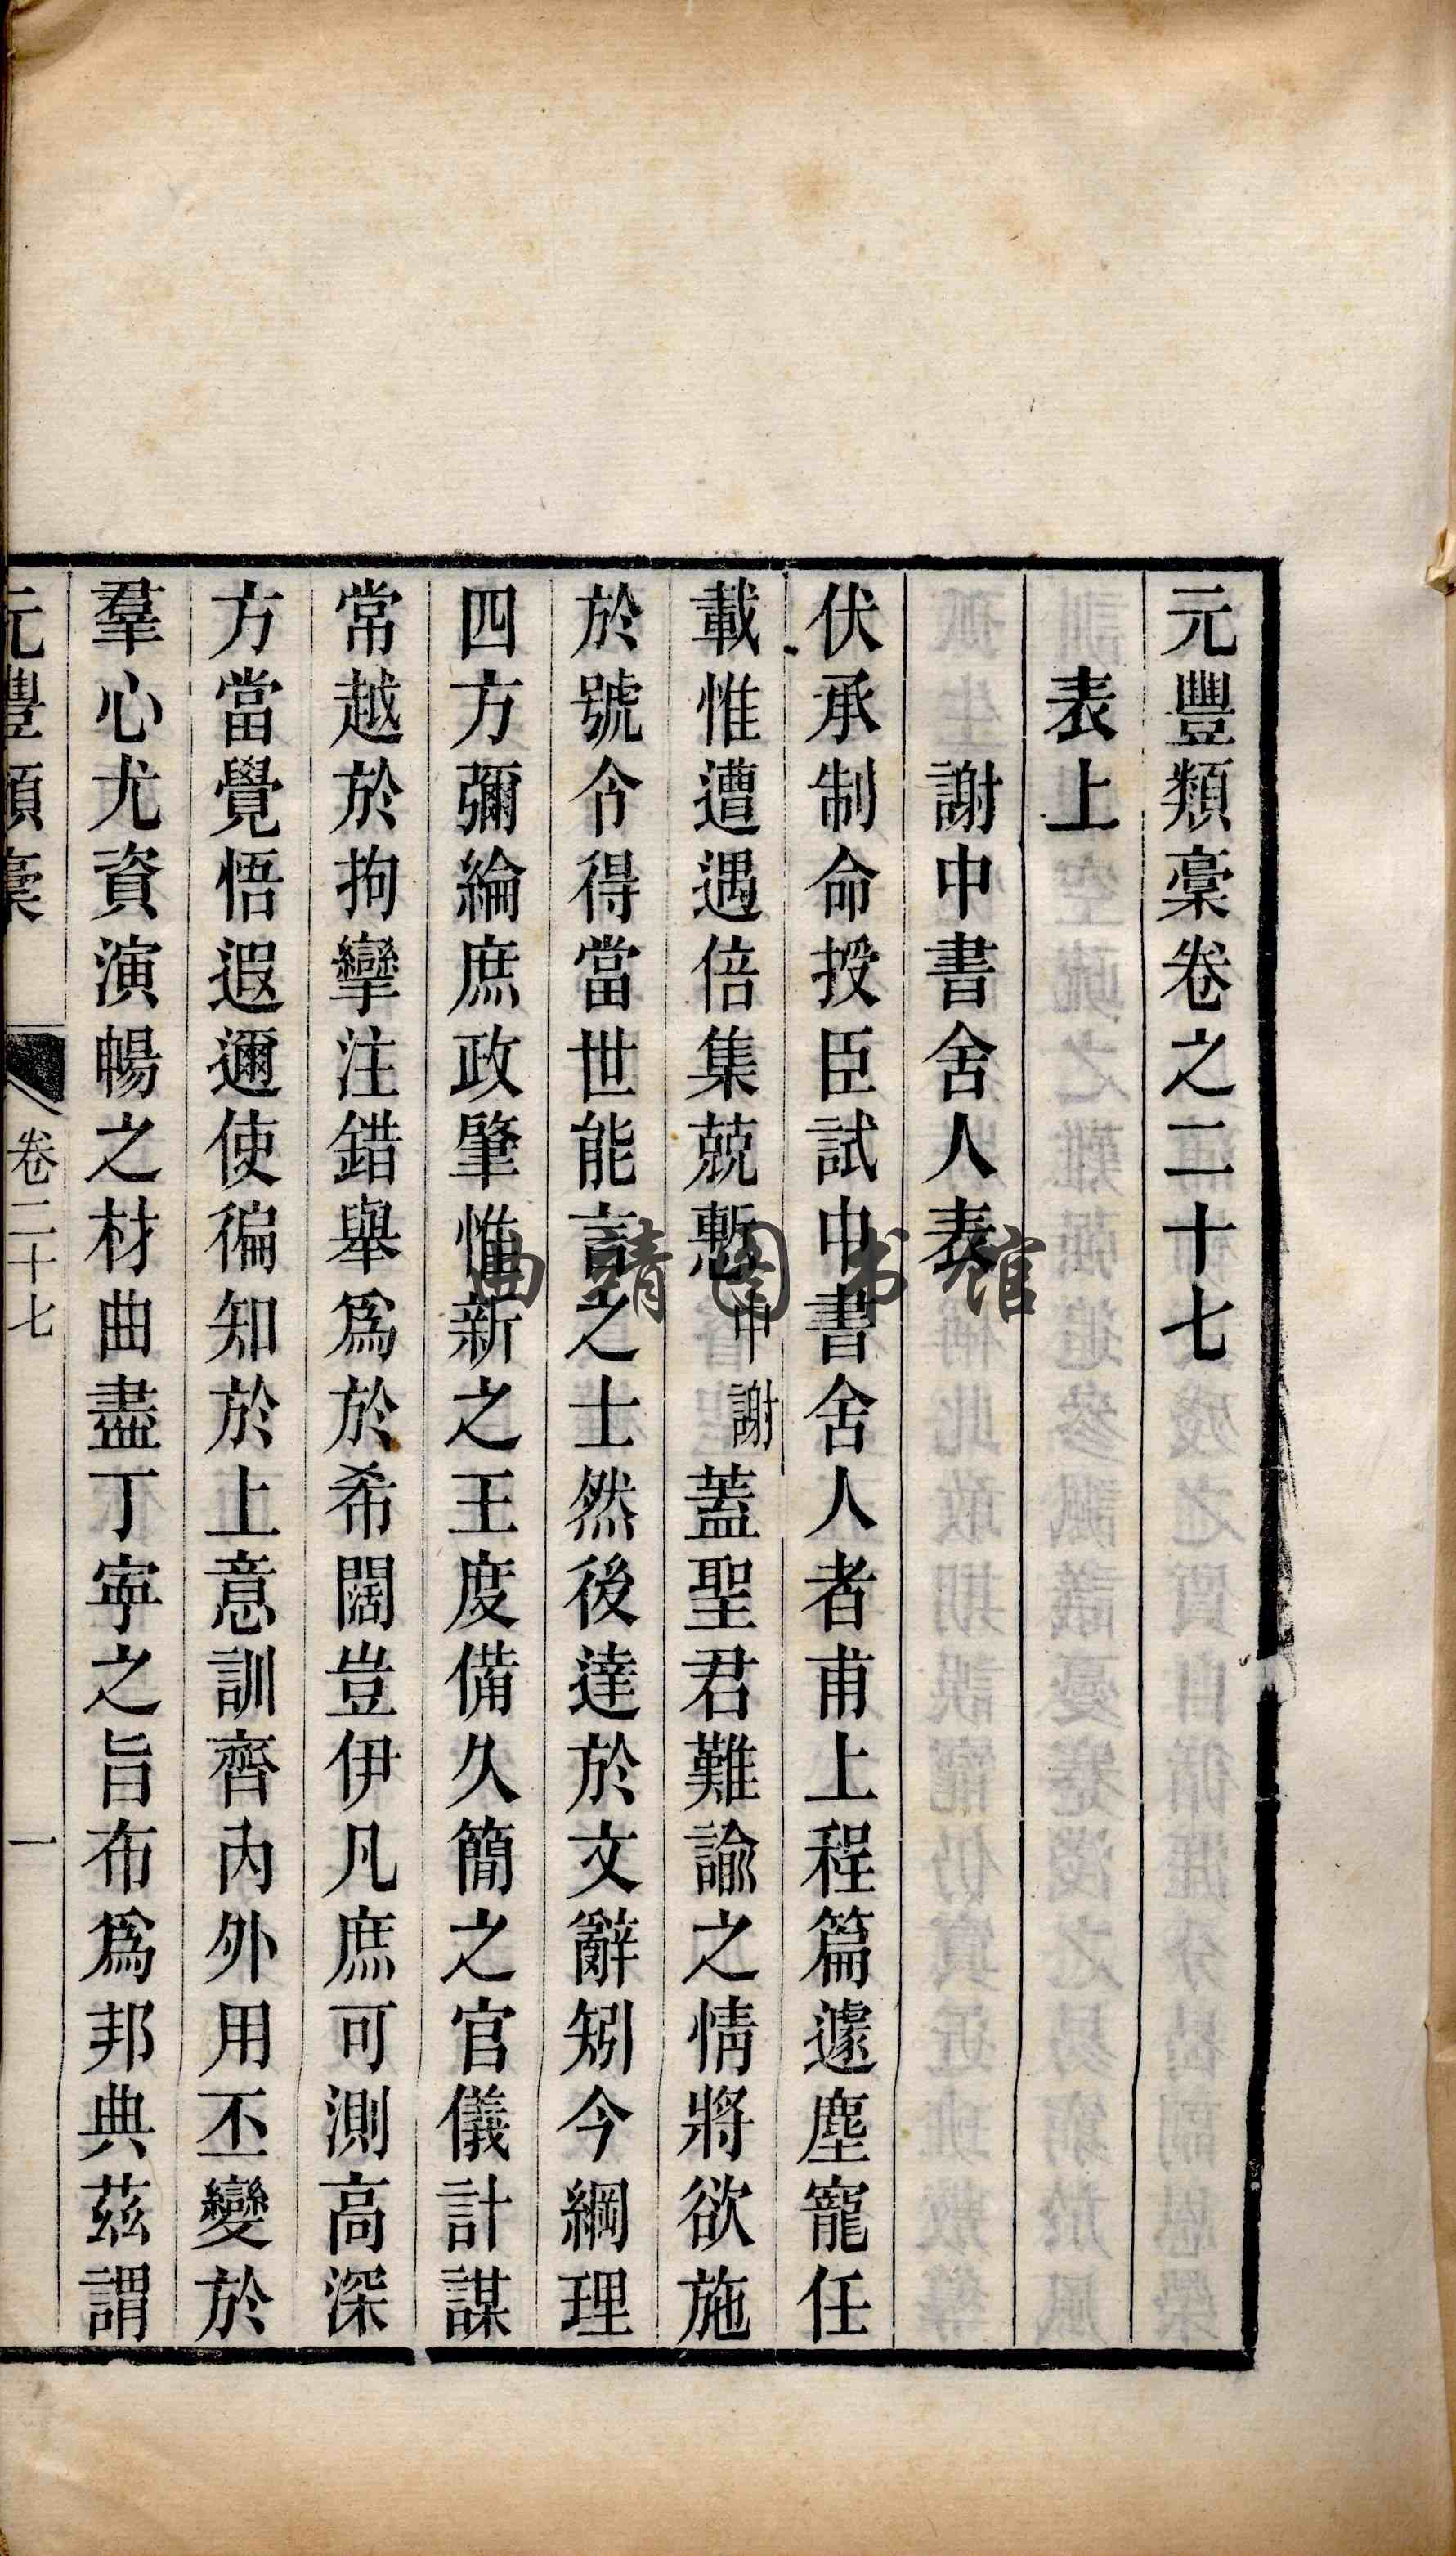 元豐類稾卷之二十七
表上
謝中書舍人表
伏承制命授臣試中書舍人者甫上程篇遽塵寵任
載惟遭遇倍集兢慙中謝蓋聖君難諭之情將欲施
於號令得當世能言之士然後達於文辭矧今綱理
四方彌綸庶政肇惟新之王度備久簡之官儀計謀
常越於拘攣注錯舉爲於希闊豈伊凡庶可測高深
方當覺悟遐邇使徧知於上意訓齊內外用丕變於
羣心尤資演暢之材曲盡丁寧之旨布爲邦典茲謂
元豐類稾 卷二十七 一
曲靖图书馆